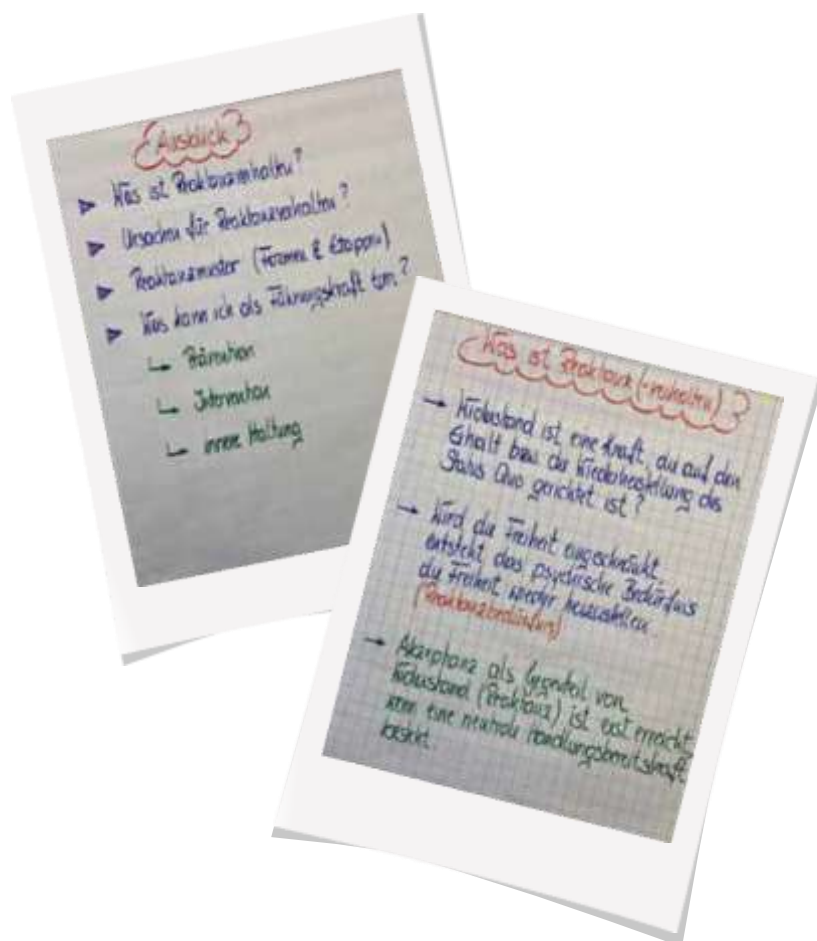 Ausblick
Was ist Reaktanzverhalten?
Ursachen für Reaktanzverhalten?
Reaktanzmuster (Formen & Etappen)
Was kann ich als Führungskraft tun?
Prävention
Intervention
innere Haltung
Was ist Reaktanz (-verhalten)?
→ Widerstand ist eine Kraft, die auf den
Erhalt bzw. die Wiederherstellung des
Status Quo gerichtet ist?
→ Wird die Freiheit eingeschränkt,
entsteht das psychische Bedürfnis
die Freiheit wieder herzustellen.
(Reaktanzbedürfnis)
→ Akzeptanz als Gegenteil von
Widerstand (Reaktanz) ist erst erreicht,
wenn eine neutrale Handlungsbereitschaft
besteht.